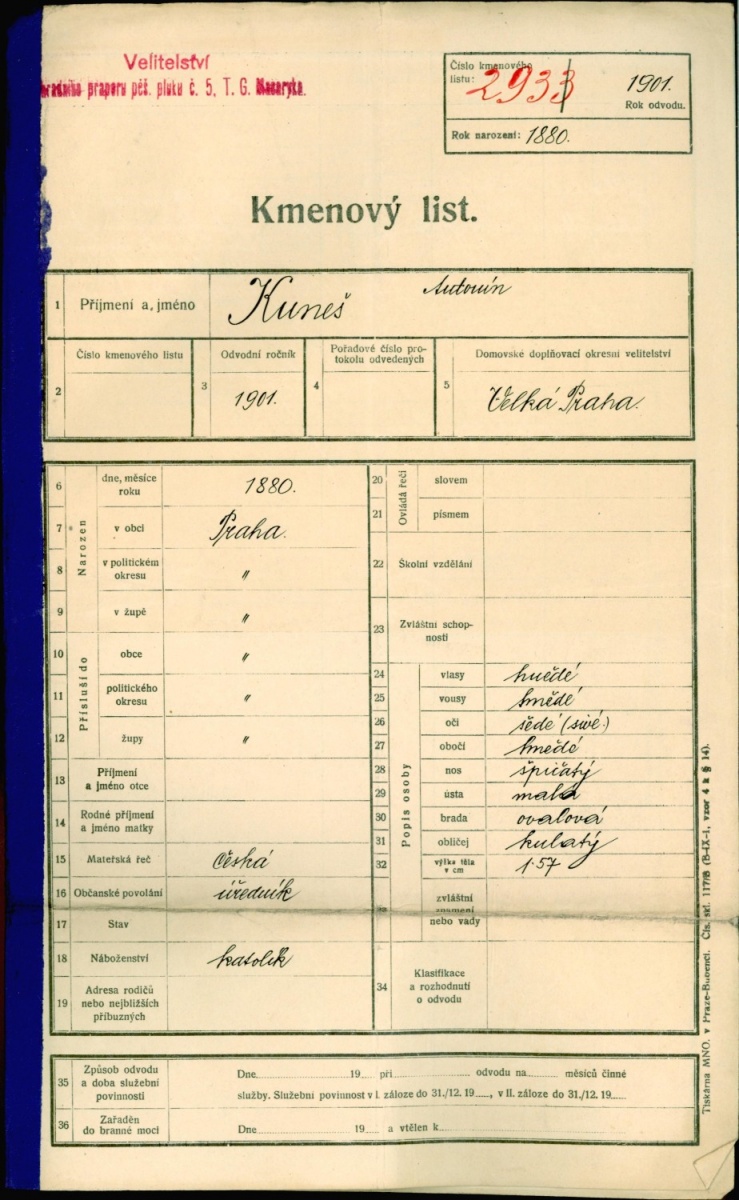 Velitelství
hradního praporu pěš. pluku č. 5, T. G. Masaryka.
Číslo kmenového listu: 2933
1901.
Rok odvodu.
Rok narození: 1880.
Kmenový list.
1 Příjmení a, jméno Kuneš Antonín
2 Číslo kmenového listu
3 Odvodní ročník 1901.
4 Pořadové číslo protokolu odvedených
5 Domovské doplňovací okresní velitelství Velká Praha.
Narozen
6 dne, měsíce roku 1880.
7 v obci Praha.
8 v politickém okresu "
9 v župě "
Přísluší do
10 obce "
11 politického okresu "
12 župy "
13 Příjmení a jméno otce
14 Rodné příjmení a jméno matky
15 Mateřská řeč česká
16 Občanské povolání úředník
17 Stav
18 Náboženství katolík
19 Adresa rodičů nebo nejbližších příbuzných
Ovládá řeči
20 slovem
21 písmem
22 Školní vzdělání
23 Zvláštní schopnosti
Popis osoby
24 vlasy hnědé
25 vousy hnědé
26 oči šedé (sivé.)
27 obočí hnědé
28 nos špičatý
29 ústa malá
30 brada ovalová
31 obličej kulatý
32 výška těla v cm 1·57
33 zvláštní znamení nebo vady
34 Klasifikace a rozhodnutí o odvodu
35 Způsob odvodu a doba služební povinnosti
Dne 19 při odvodu na měsíců činné
služby. Služební povinnost v I. záloze do 31./12. 19 , v II. záloze do 31/12. 19
36 Zařaděn do branné moci
Dne 19 a vtělen k
Tiskárna MNO. v Praze-Bubenči. Čís. skl. 117/B (B-IX-1, vzor 4 k § 14).